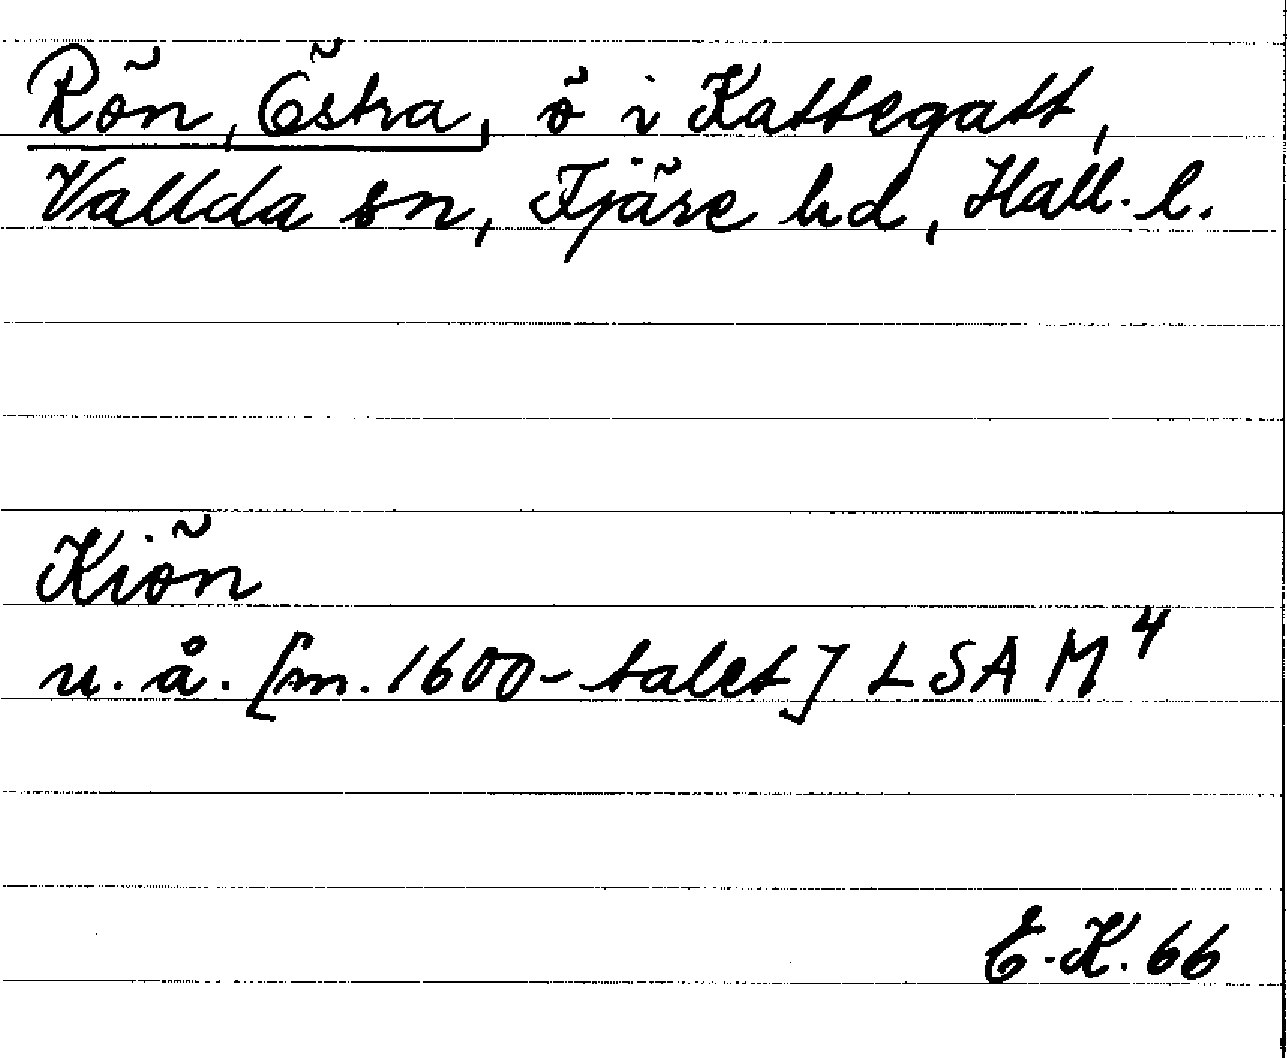 Rön, Östra, ö i Kattegatt,
Vallda sn, Fjäre hd, Hall. l.
Kiön
u. å. [m. 1600-talet] LSA M⁴
E.K. 66